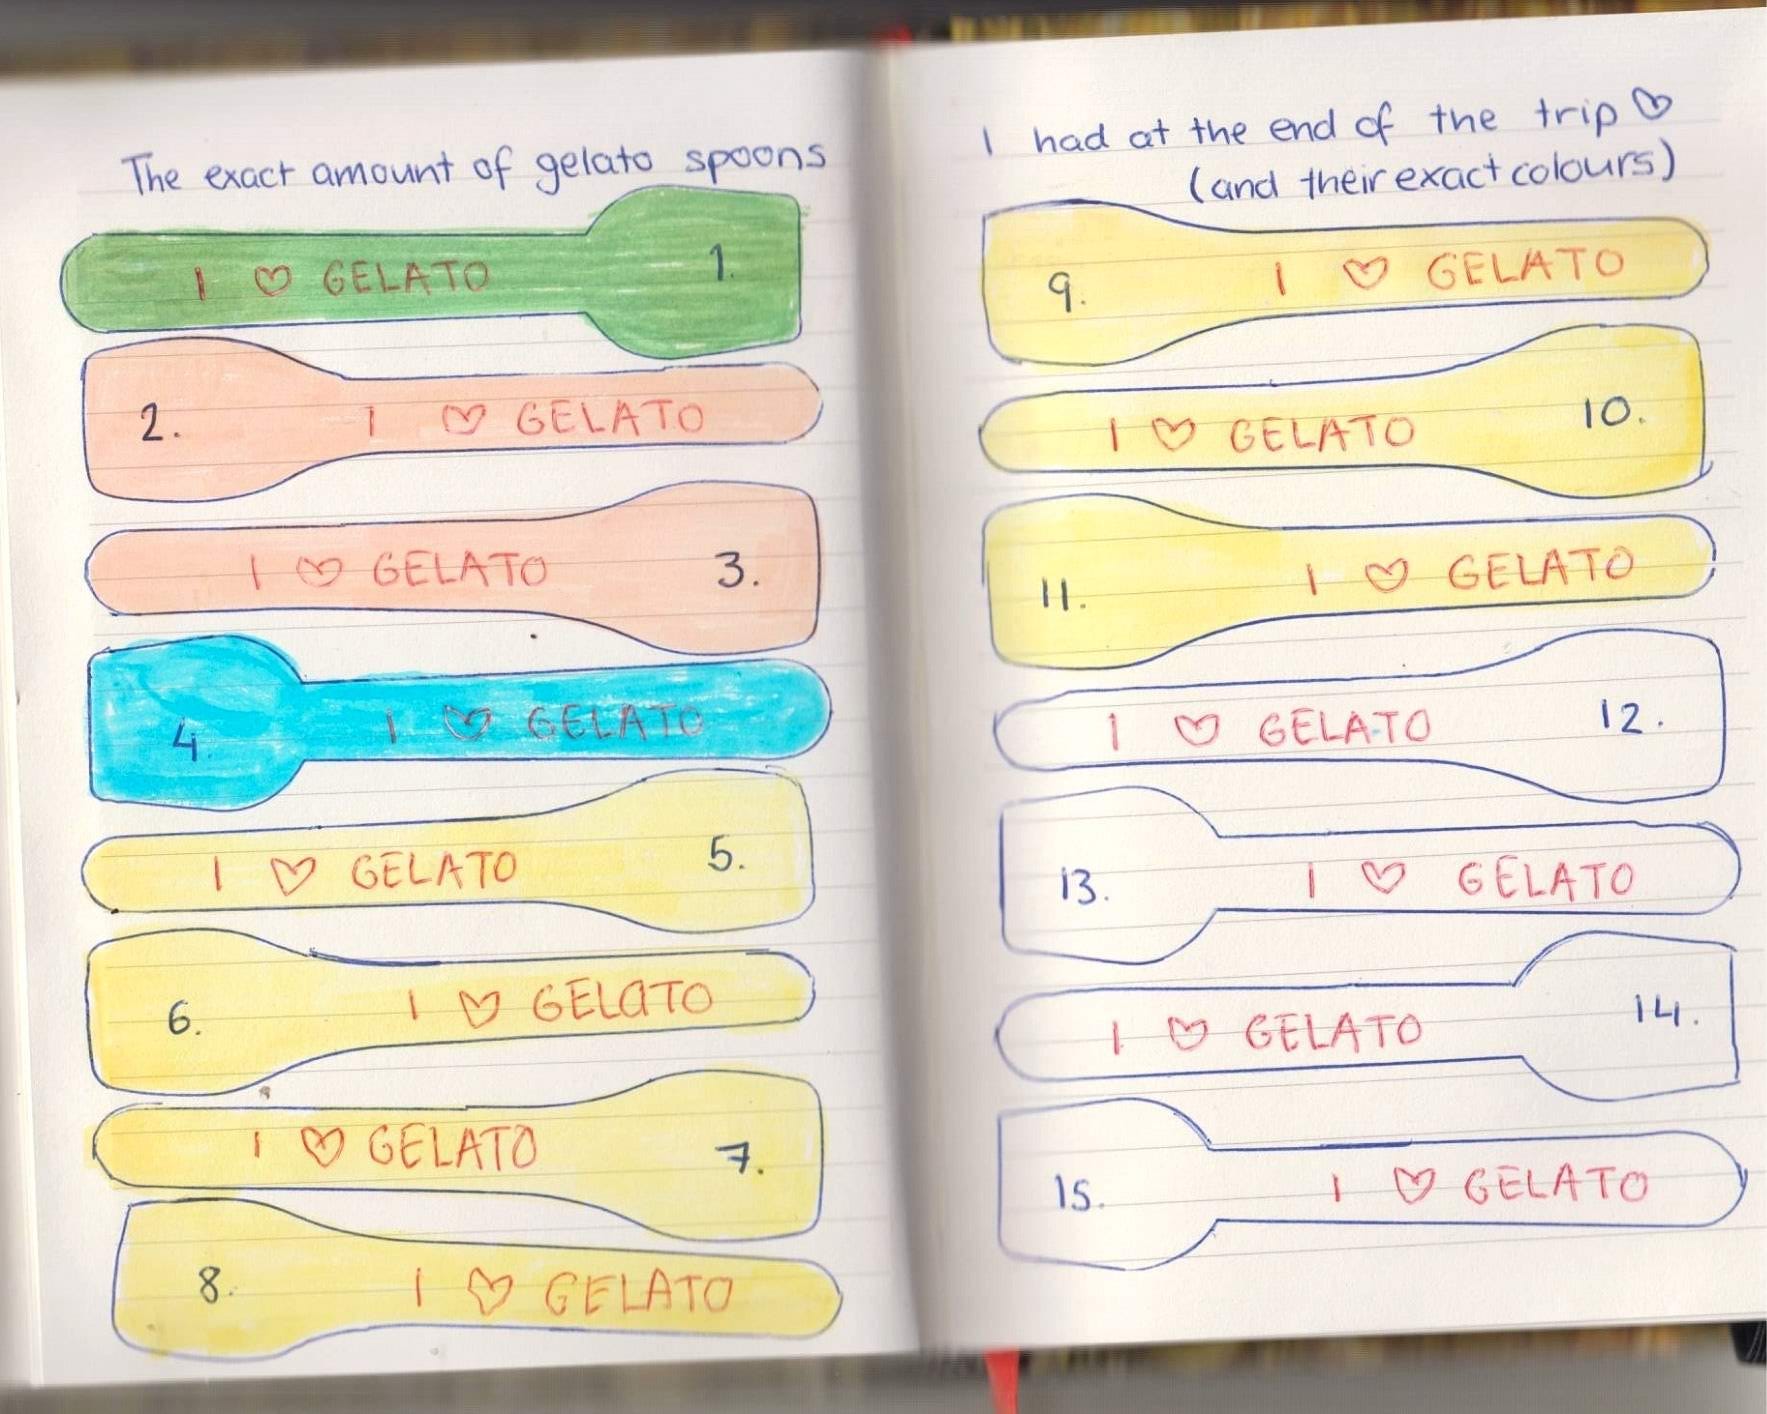 The exact amount of gelato spoons
1.
I ♡ GELATO
2.
I ♡ GELATO
I ♡ GELATO
3.
4.
I ♡ GELATO
I ♡ GELATO
5.
6.
I ♡ GELaTO
I ♡ GELATO
7.
8.
I ♡ GELATO
I had at the end of the trip ♡
(and their exact colours)
9.
I ♡ GELATO
I ♡ GELATO
10.
11.
I ♡ GELATO
I ♡ GELATO
12.
13.
I ♡ GELATO
I ♡ GELATO
14.
15.
I ♡ GELATO